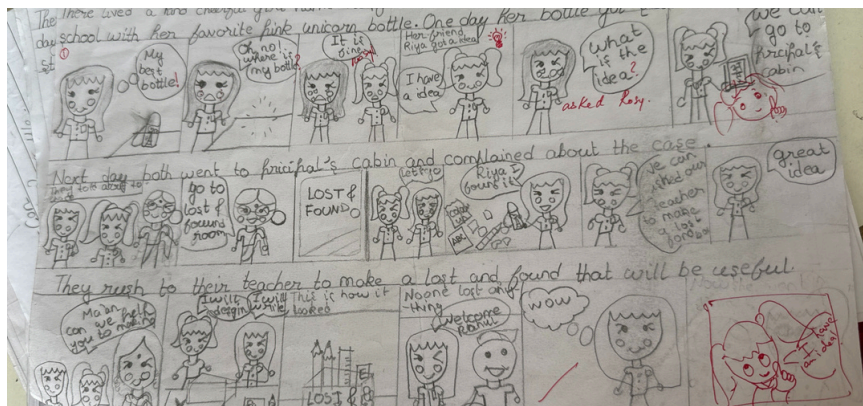 there lived a kind cheerful girl
day school with her favorite pink unicorn bottle. One day her bottle got
1
My best bottle!
Oh no! where is my bottle?
It is fine
Her friend Riya got a idea!
I have a idea
What is the idea?
asked Rosy.
we can go to pricipal's cabin
Next day both went to pricipal's cabin and complained about the case.
go to lost & found room
LOST & FOUND
Let's go
Riya I found it
ABC
we can asked our teacher to make a lost
great idea
They rush to their teacher to make a lost and found that will be useful.
Ma'am can we help you to making
I will
I will write
This is how it looked
LOST &
No one lost any-thing
Welcome
WOW
I have an idea!